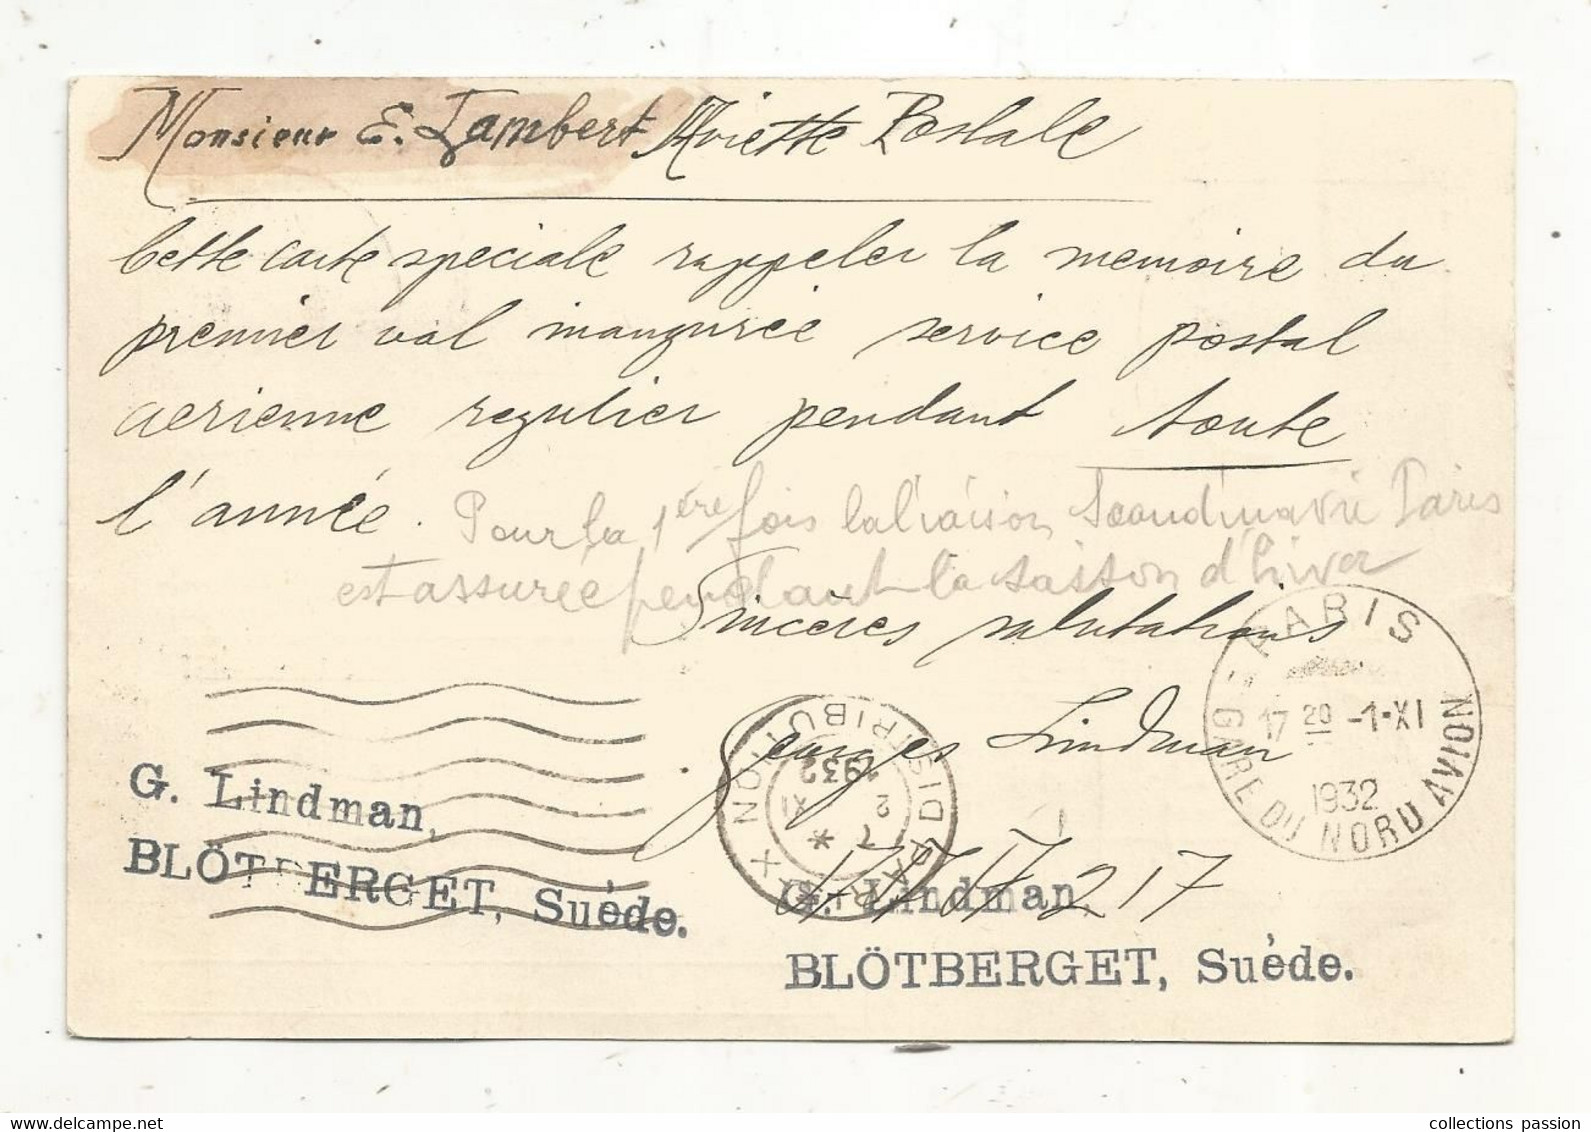 Monsieur E. Lambert, Aviette Postale
Cette carte speciale rappeler la memoire du
premier vol inaugurée service postal
aerienne regulier pendant toute
l'année.
Pour la 1ère fois la liaison Scandinavie Paris
est assurée pendant la saison d'hiver
Sincères salutations
Georges Lindman
PARIS
GARE DU NORD AVION
17 20 -1-XI
1932
DISTRIBUTION
7
2 XI
1932
G. Lindman,
BLÖTBERGET, Suéde.
217
G. Lindman,
BLÖTBERGET, Suéde.
collections passion